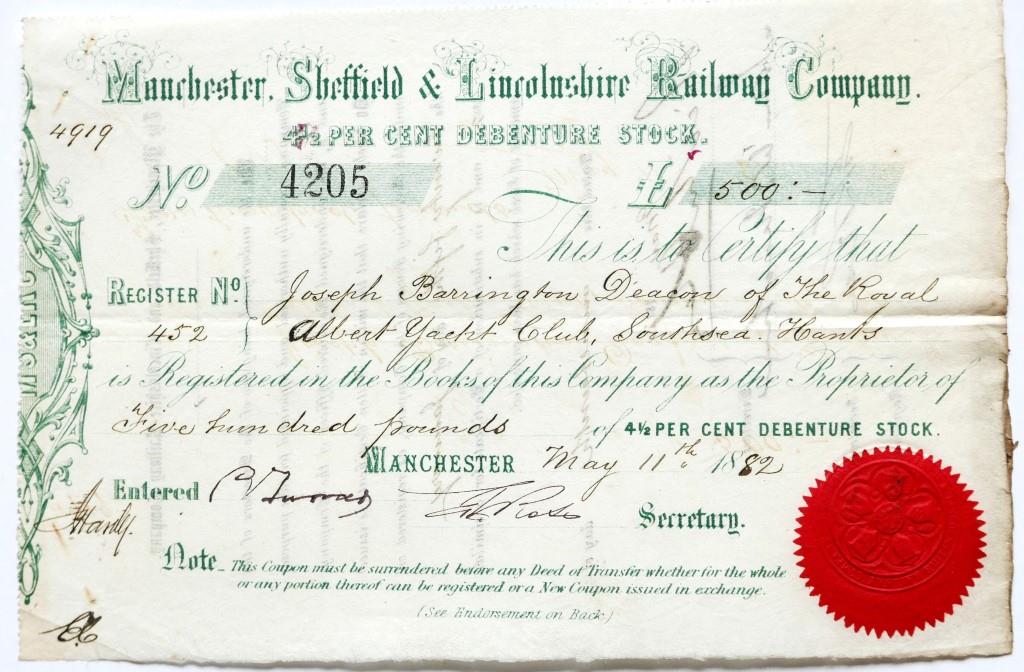 Manchester, Sheffield & Lincolnshire Railway Company.
4919
4½ PER CENT DEBENTURE STOCK.
No. 4205 £ 500:-
This is to Certify that
REGISTER No. Joseph Barrington Deacon of The Royal
452 Albert Yacht Club, Southsea. Hants
is Registered in the Books of this Company as the Proprietor of
Five hundred pounds of 4½ PER CENT DEBENTURE STOCK.
MANCHESTER May 11th 1882
Entered
Secretary.
Note_ This Coupon must be surrendered before any Deed of Transfer whether for the whole
or any portion thereof can be registered or a New Coupon issued in exchange.
(See Endorsement on Back)